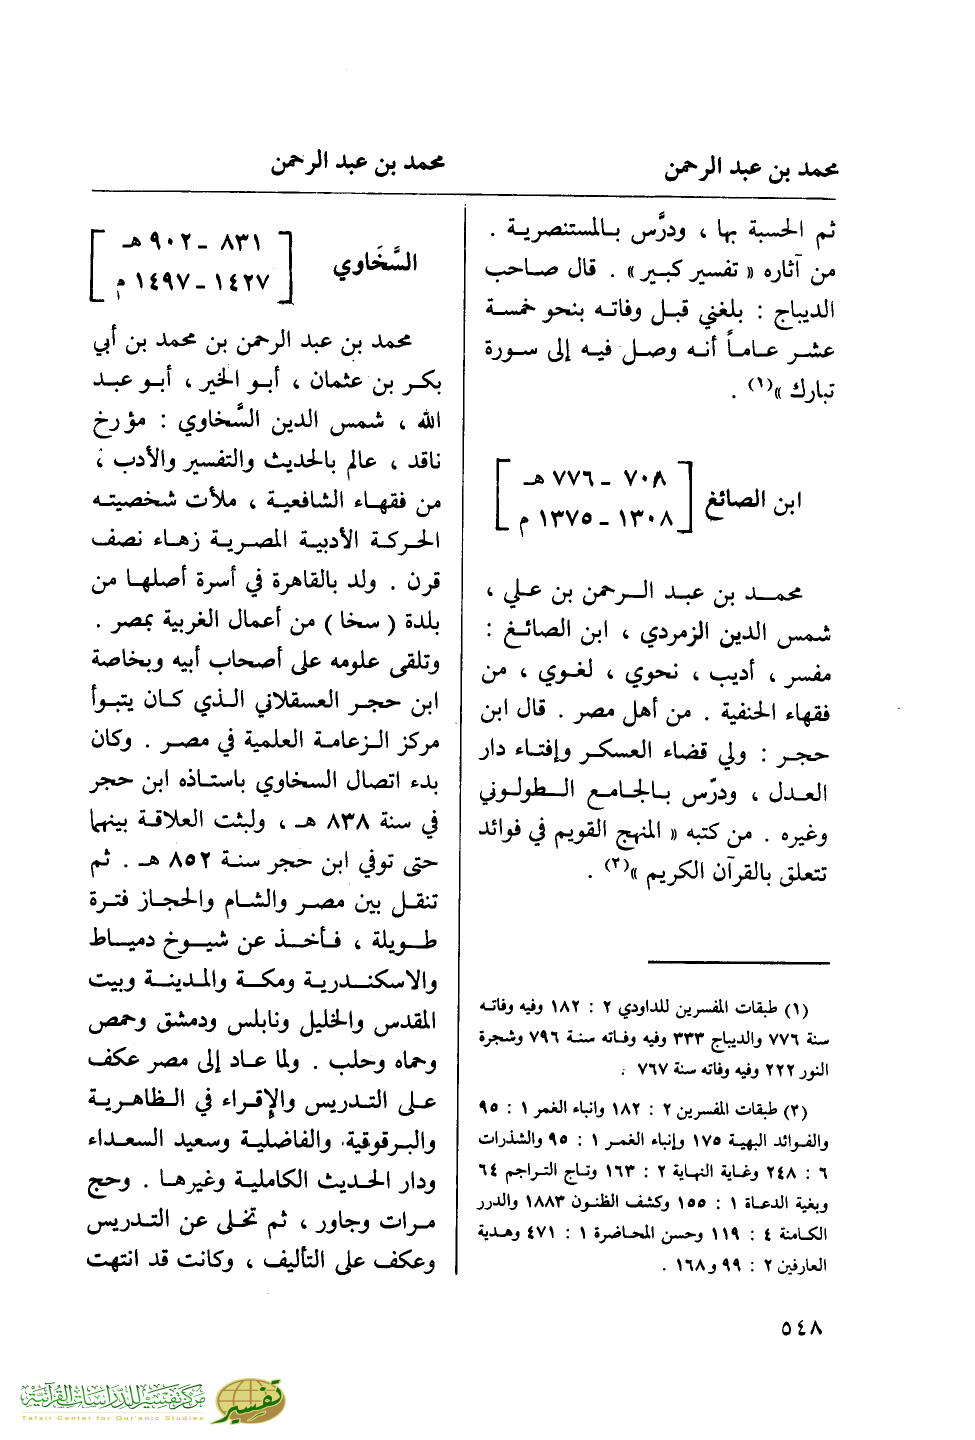 محمد بن عبد الرحمن
محمد بن عبد الرحمن
ثم الحسبة بها ، ودرَّس بالمستنصرية .
من آثاره « تفسير كبير » . قال صاحب
الديباج : بلغني قبل وفاته بنحو خمسة
عشر عاماً أنه وصل فيه إلى سورة
تبارك »(١) .
ابن الصائغ [ ٧٠٨ ـ ٧٧٦ هـ
١٣٠٨ ـ ١٣٧٥ م ]
محمد بن عبد الرحمن بن علي ،
شمس الدين الزمردي ، ابن الصائغ :
مفسر ، أديب ، نحوي ، لغوي ، من
فقهاء الحنفية . من أهل مصر . قال ابن
حجر : ولي قضاء العسكر وإفتاء دار
العدل ، ودرّس بالجامع الطولوني
وغيره . من كتبه « المنهج القويم في فوائد
تتعلق بالقرآن الكريم »(٢) .
(١) طبقات المفسرين للداودي ٢ : ١٨٢ وفيه وفاته
سنة ٧٧٦ والديباج ٣٣٣ وفيه وفاته سنة ٧٩٦ وشجرة
النور ٢٢٢ وفيه وفاته سنة ٧٦٧ .
(٢) طبقات المفسرين ٢ : ١٨٢ وانباء الغمر ١ : ٩٥
والفوائد البهية ١٧٥ وإنباء الغمر ١ : ٩٥ والشذرات
٦ : ٢٤٨ وغاية النهاية ٢ : ١٦٣ وتاج التراجم ٦٤
وبغية الدعاة ١ : ١٥٥ وكشف الظنون ١٨٨٣ والدرر
الكامنة ٤ : ١١٩ وحسن المحاضرة ١ : ٤٧١ وهدية
العارفين ٢ : ٩٩ و١٦٨ .
السَّخَاوي [ ٨٣١ ـ ٩٠٢ هـ
١٤٢٧ ـ ١٤٩٧ م ]
محمد بن عبد الرحمن بن محمد بن أبي
بكر بن عثمان ، أبو الخير ، أبو عبد
الله ، شمس الدين السَّخاوي : مؤرخ
ناقد ، عالم بالحديث والتفسير والأدب ،
من فقهاء الشافعية ، ملأت شخصيته
الحركة الأدبية المصرية زهاء نصف
قرن . ولد بالقاهرة في أسرة أصلها من
بلدة ( سخا ) من أعمال الغربية بمصر .
وتلقى علومه على أصحاب أبيه وبخاصة
ابن حجر العسقلاني الذي كان يتبوأ
مركز الزعامة العلمية في مصر . وكان
بدء اتصال السخاوي باستاذه ابن حجر
في سنة ٨٣٨ هـ ، ولبثت العلاقة بينهما
حتى توفي ابن حجر سنة ٨٥٢ هـ . ثم
تنقل بين مصر والشام والحجاز فترة
طويلة ، فأخذ عن شيوخ دمياط
والاسكندرية ومكة والمدينة وبيت
المقدس والخليل ونابلس ودمشق وحمص
وحماه وحلب . ولما عاد إلى مصر عكف
على التدريس والإقراء في الظاهرية
والبرقوقية، والفاضلية وسعيد السعداء
ودار الحديث الكاملية وغيرها . وحج
مرات وجاور ، ثم تخلى عن التدريس
وعكف على التأليف ، وكانت قد انتهت
٥٤٨
مركز تفسير للدراسات القرآنية
Tafsir Center for Qur'anic Studies
تفسير